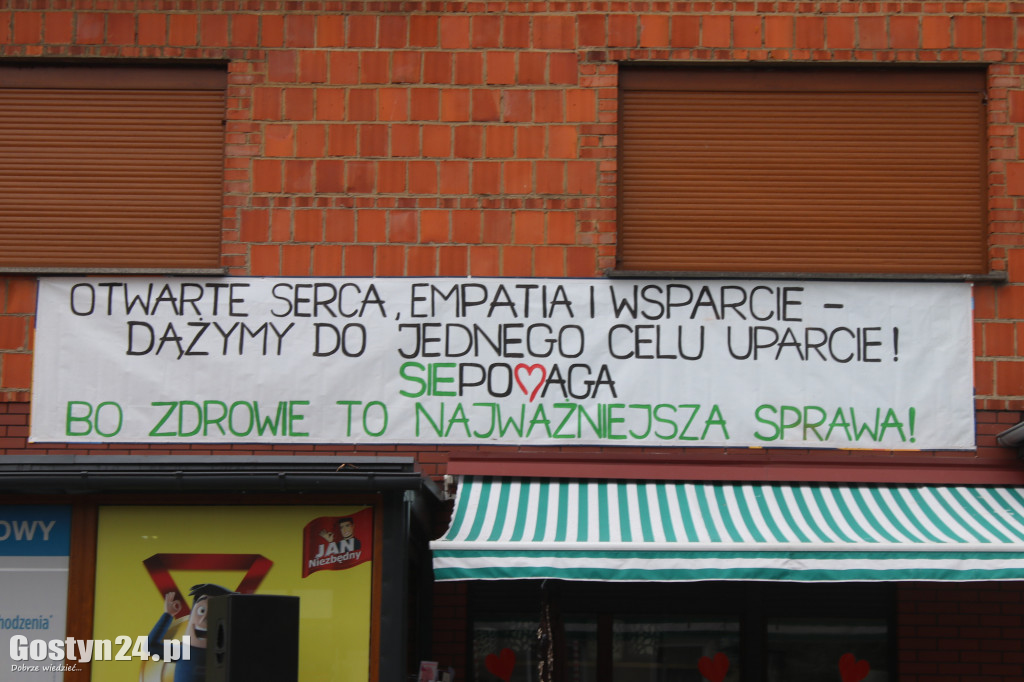 OTWARTE SERCA, EMPATIA I WSPARCIE –
DĄŻYMY DO JEDNEGO CELU UPARCIE!
SIEPOMAGA
BO ZDROWIE TO NAJWAŻNIEJSZA SPRAWA!
OWY
JAN
Niezbędny
hodzenia"
Gostyn24.pl
Dobrze wiedzieć...